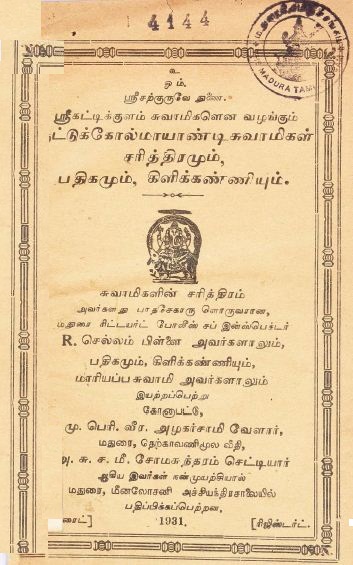 4144
MADURA TAM
உ
ஓம்.
ஸ்ரீசற்குருவே துணை.
ஸ்ரீகட்டிக்குளம் சுவாமிகளென வழங்கும்
ட்டுக்கோல்மாயாண்டிசுவாமிகள்
சரித்திரமும்,
பதிகமும், கிளிக்கண்ணியும்.
சுவாமிகளின் சரித்திரம்
அவர்களது பாதசேகாரு ளொருவரான,
மதுரை ரிட்டையர்ட் போலீஸ் சப் இன்ஸ்பெக்டர்
R. செல்லம் பிள்ளை அவர்களாலும்,
பதிகமும், கிளிக்கண்ணியும்,
மாரியப்ப சுவாமி அவர்களாலும்
இயற்றப்பெற்று
கோனாபட்டு,
மு. பெரி. வீர. அழகர்சாமி வேளார்,
மதுரை, தெற்காவணிமூல வீதி,
அ. சு. ச. மீ. சோமசுந்தரம் செட்டியார்
ஆகிய இவர்கள் நன்முயற்சியால்
மதுரை, மீனலோசனி அச்சியந்திரசாலையில்
பதிப்பிக்கப்பெற்றன,
ரைட்] 1931. [ரிஜிஸ்டர்ட்.